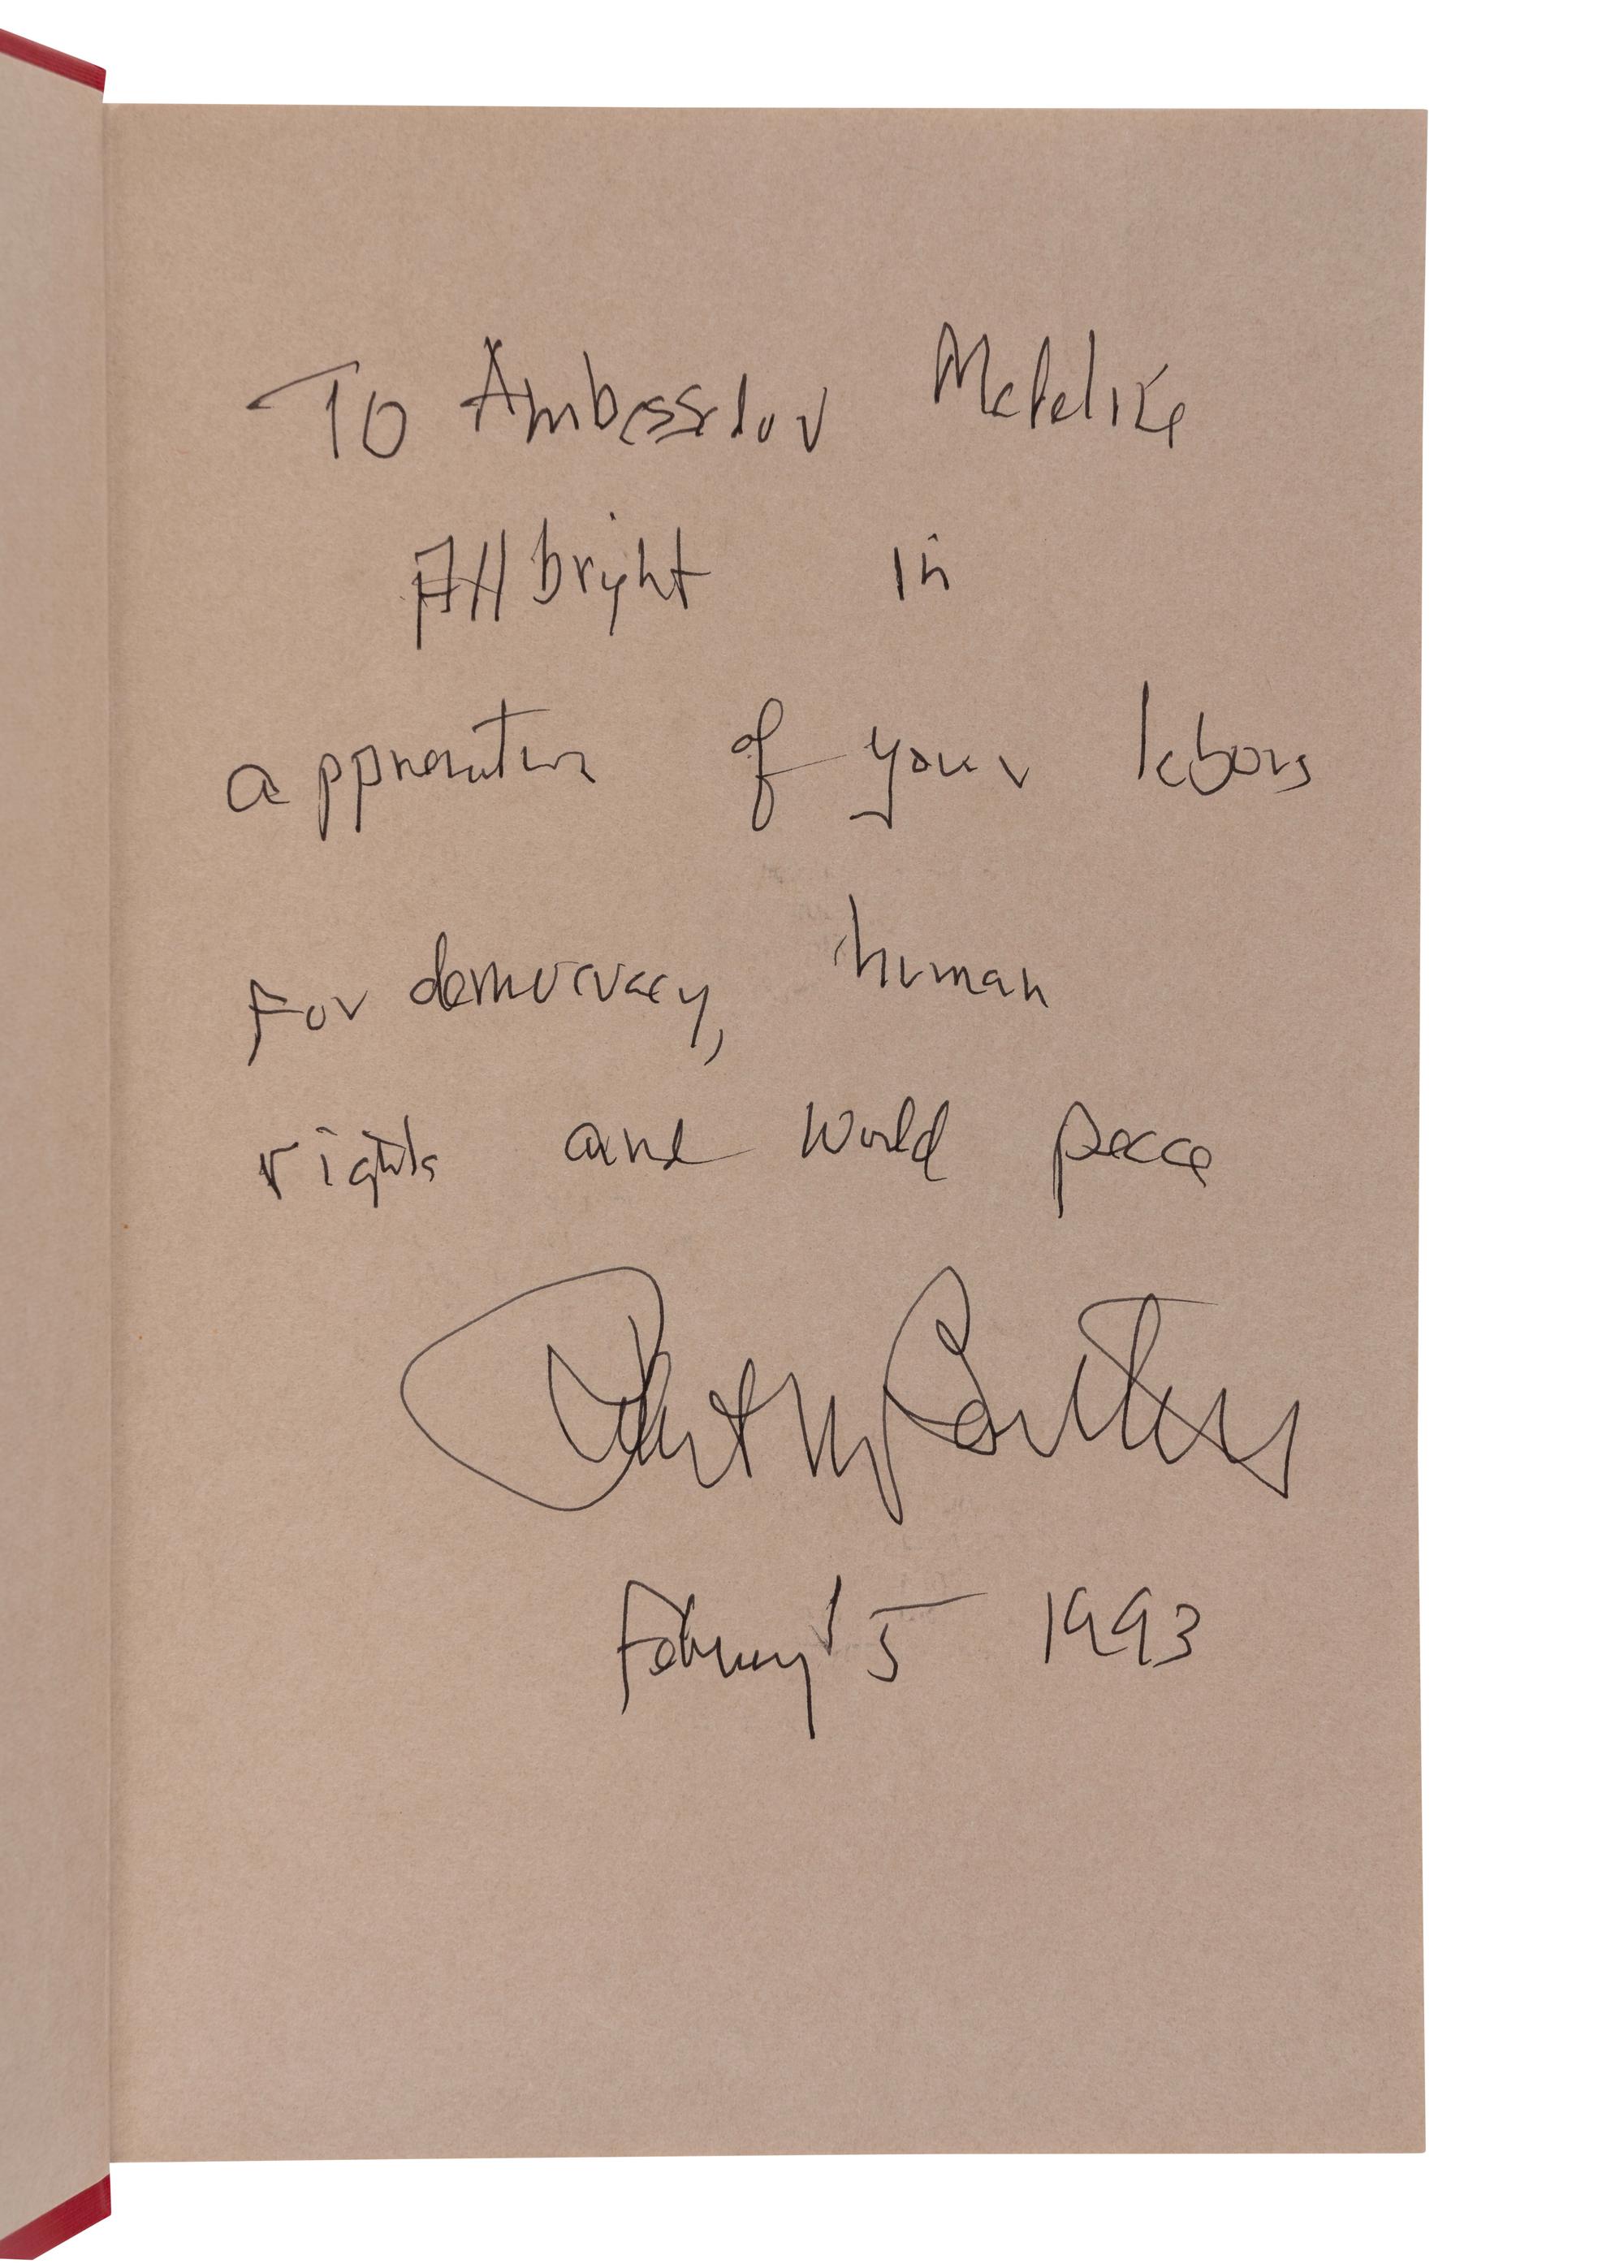 To Ambassador Madeline
Allbright in
appreciation of your labors
for democracy, human
rights and world peace
February 5 1993